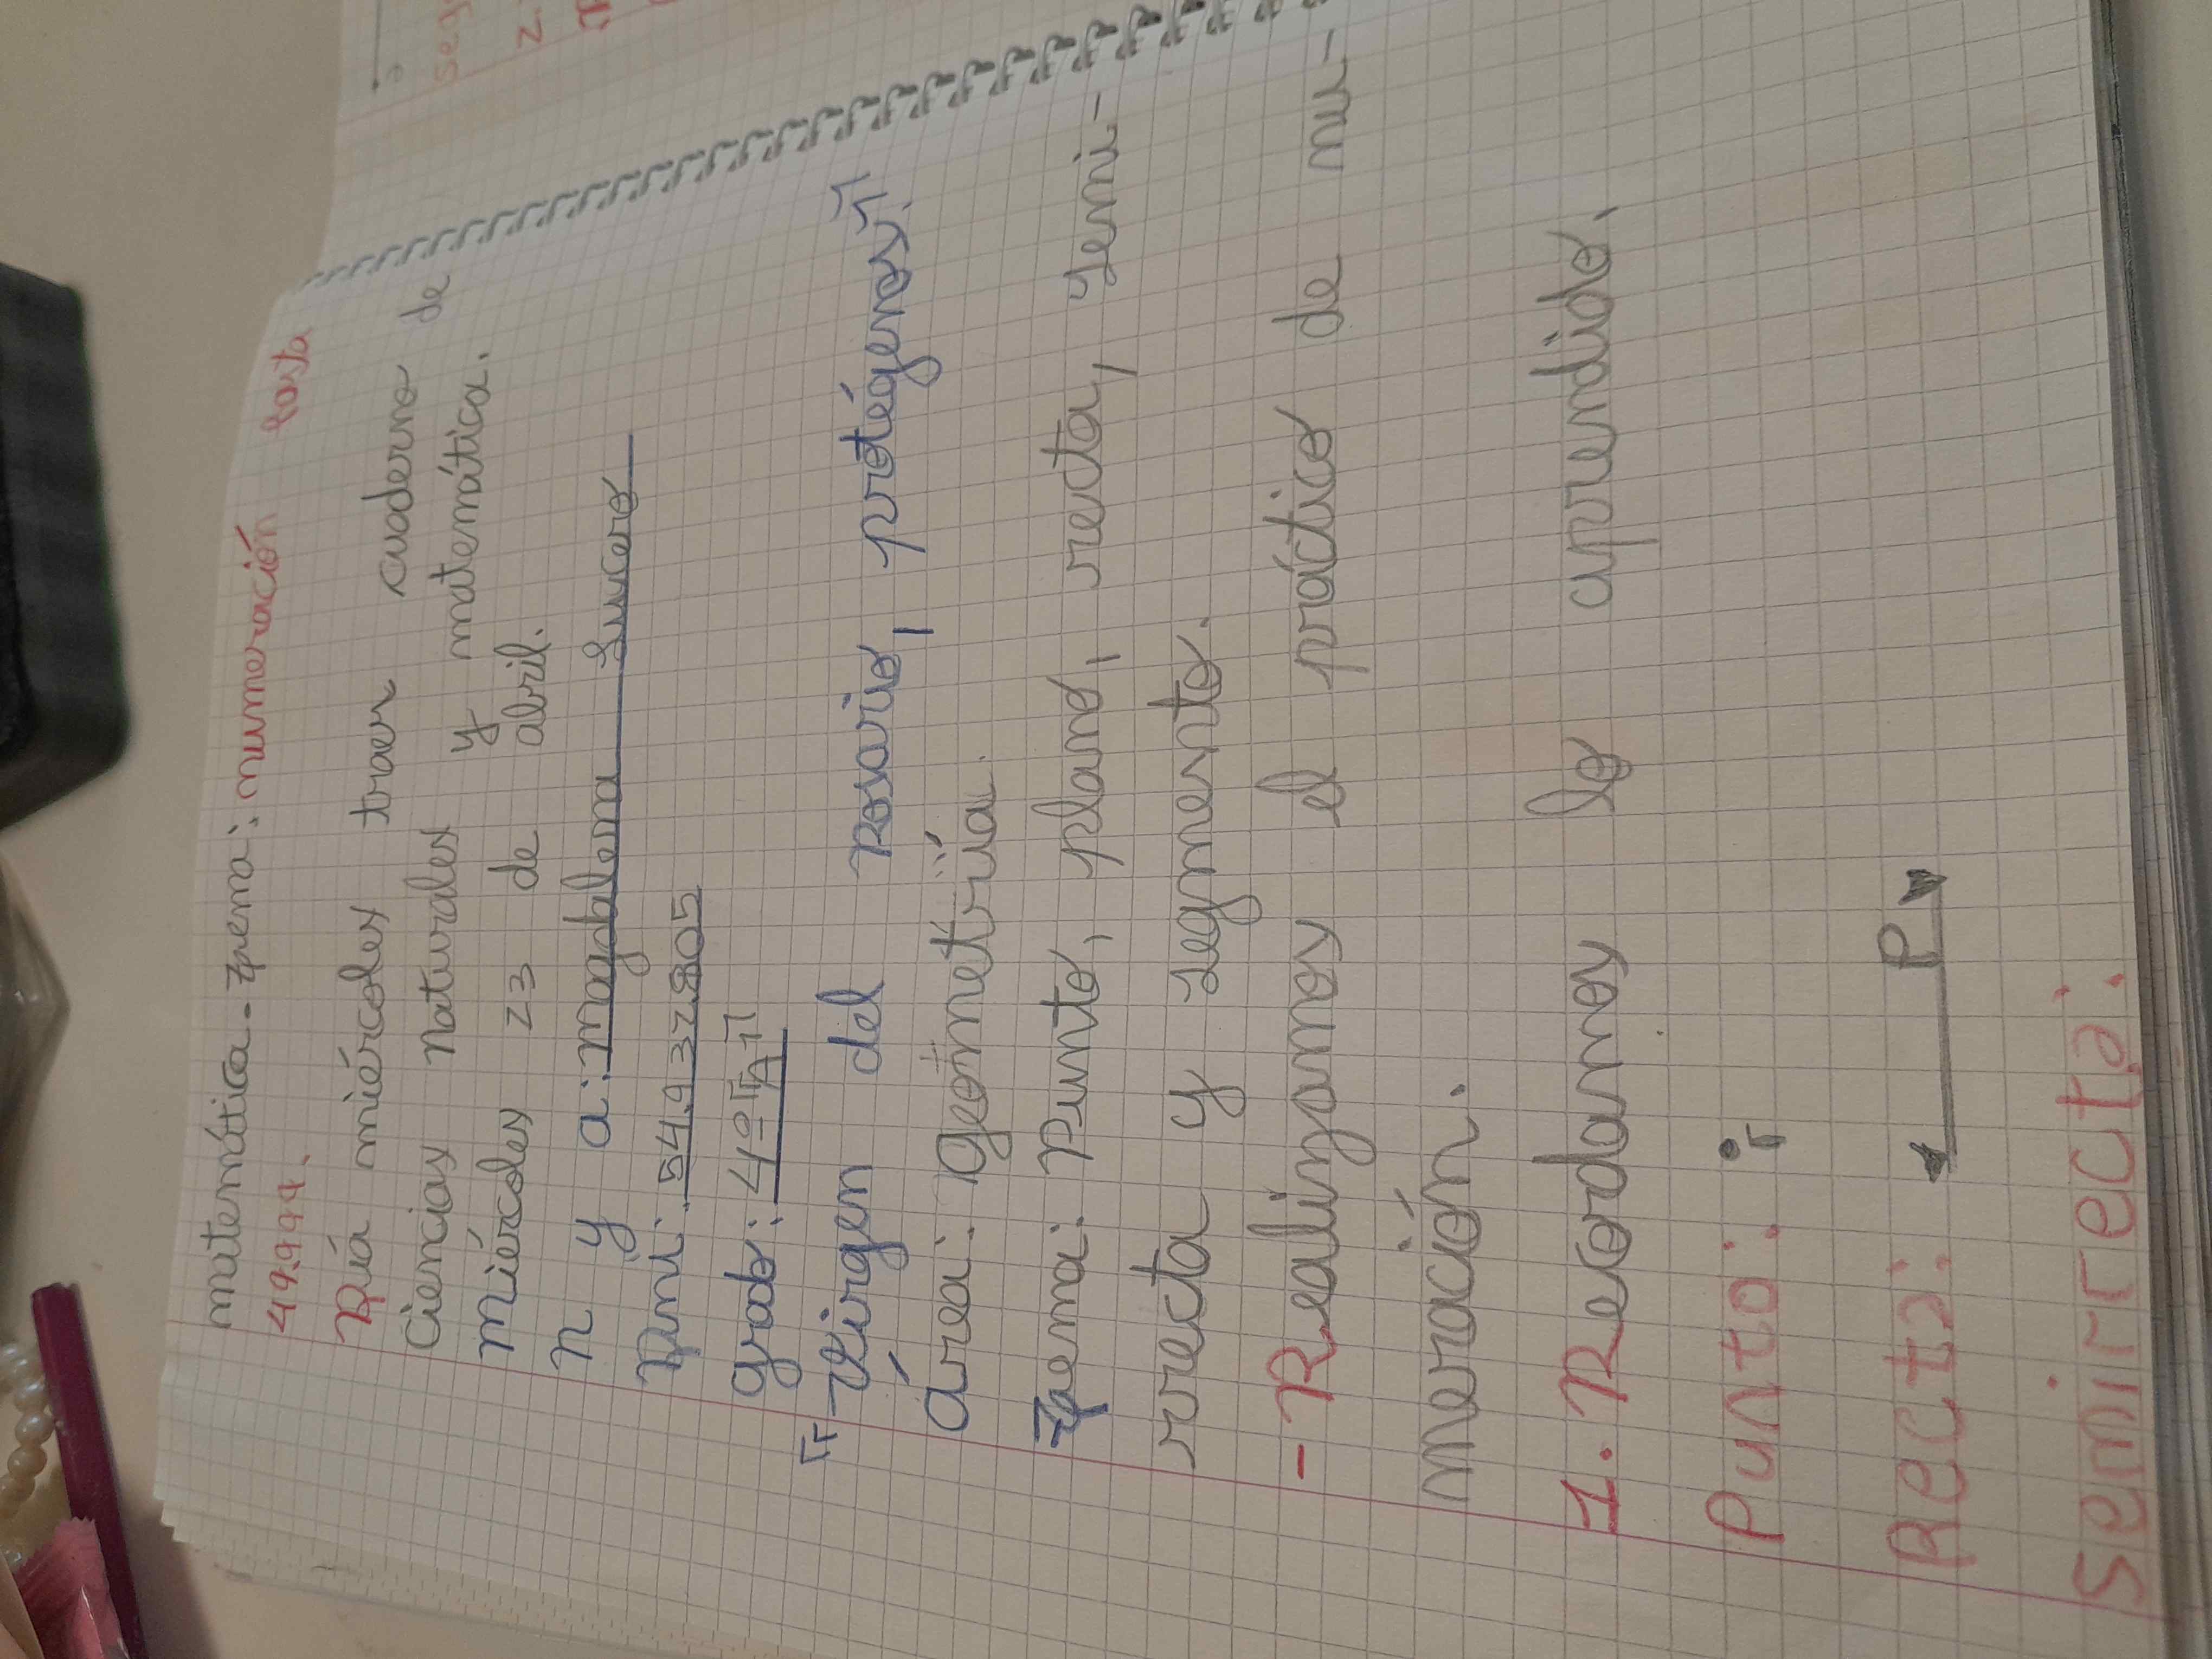 matemática - Tema: numeración hasta
49.999.
Día miércoles traer cuaderno de
Ciencias Naturales y matemática.
Miércoles 23 de abril.
n y a: magdalena Lucero
Dni: 54.932.805
grado: 4º "A"
"Virgen del Rosario, protégenos".
Área: Geometría.
Tema: Punto, plano, recta, semi-
rrecta y segmento.
- Realizamos el práctico de nu-
meración.
1. Recordamos lo aprendido.
Punto: . r
Recta: P
Semirrecta: